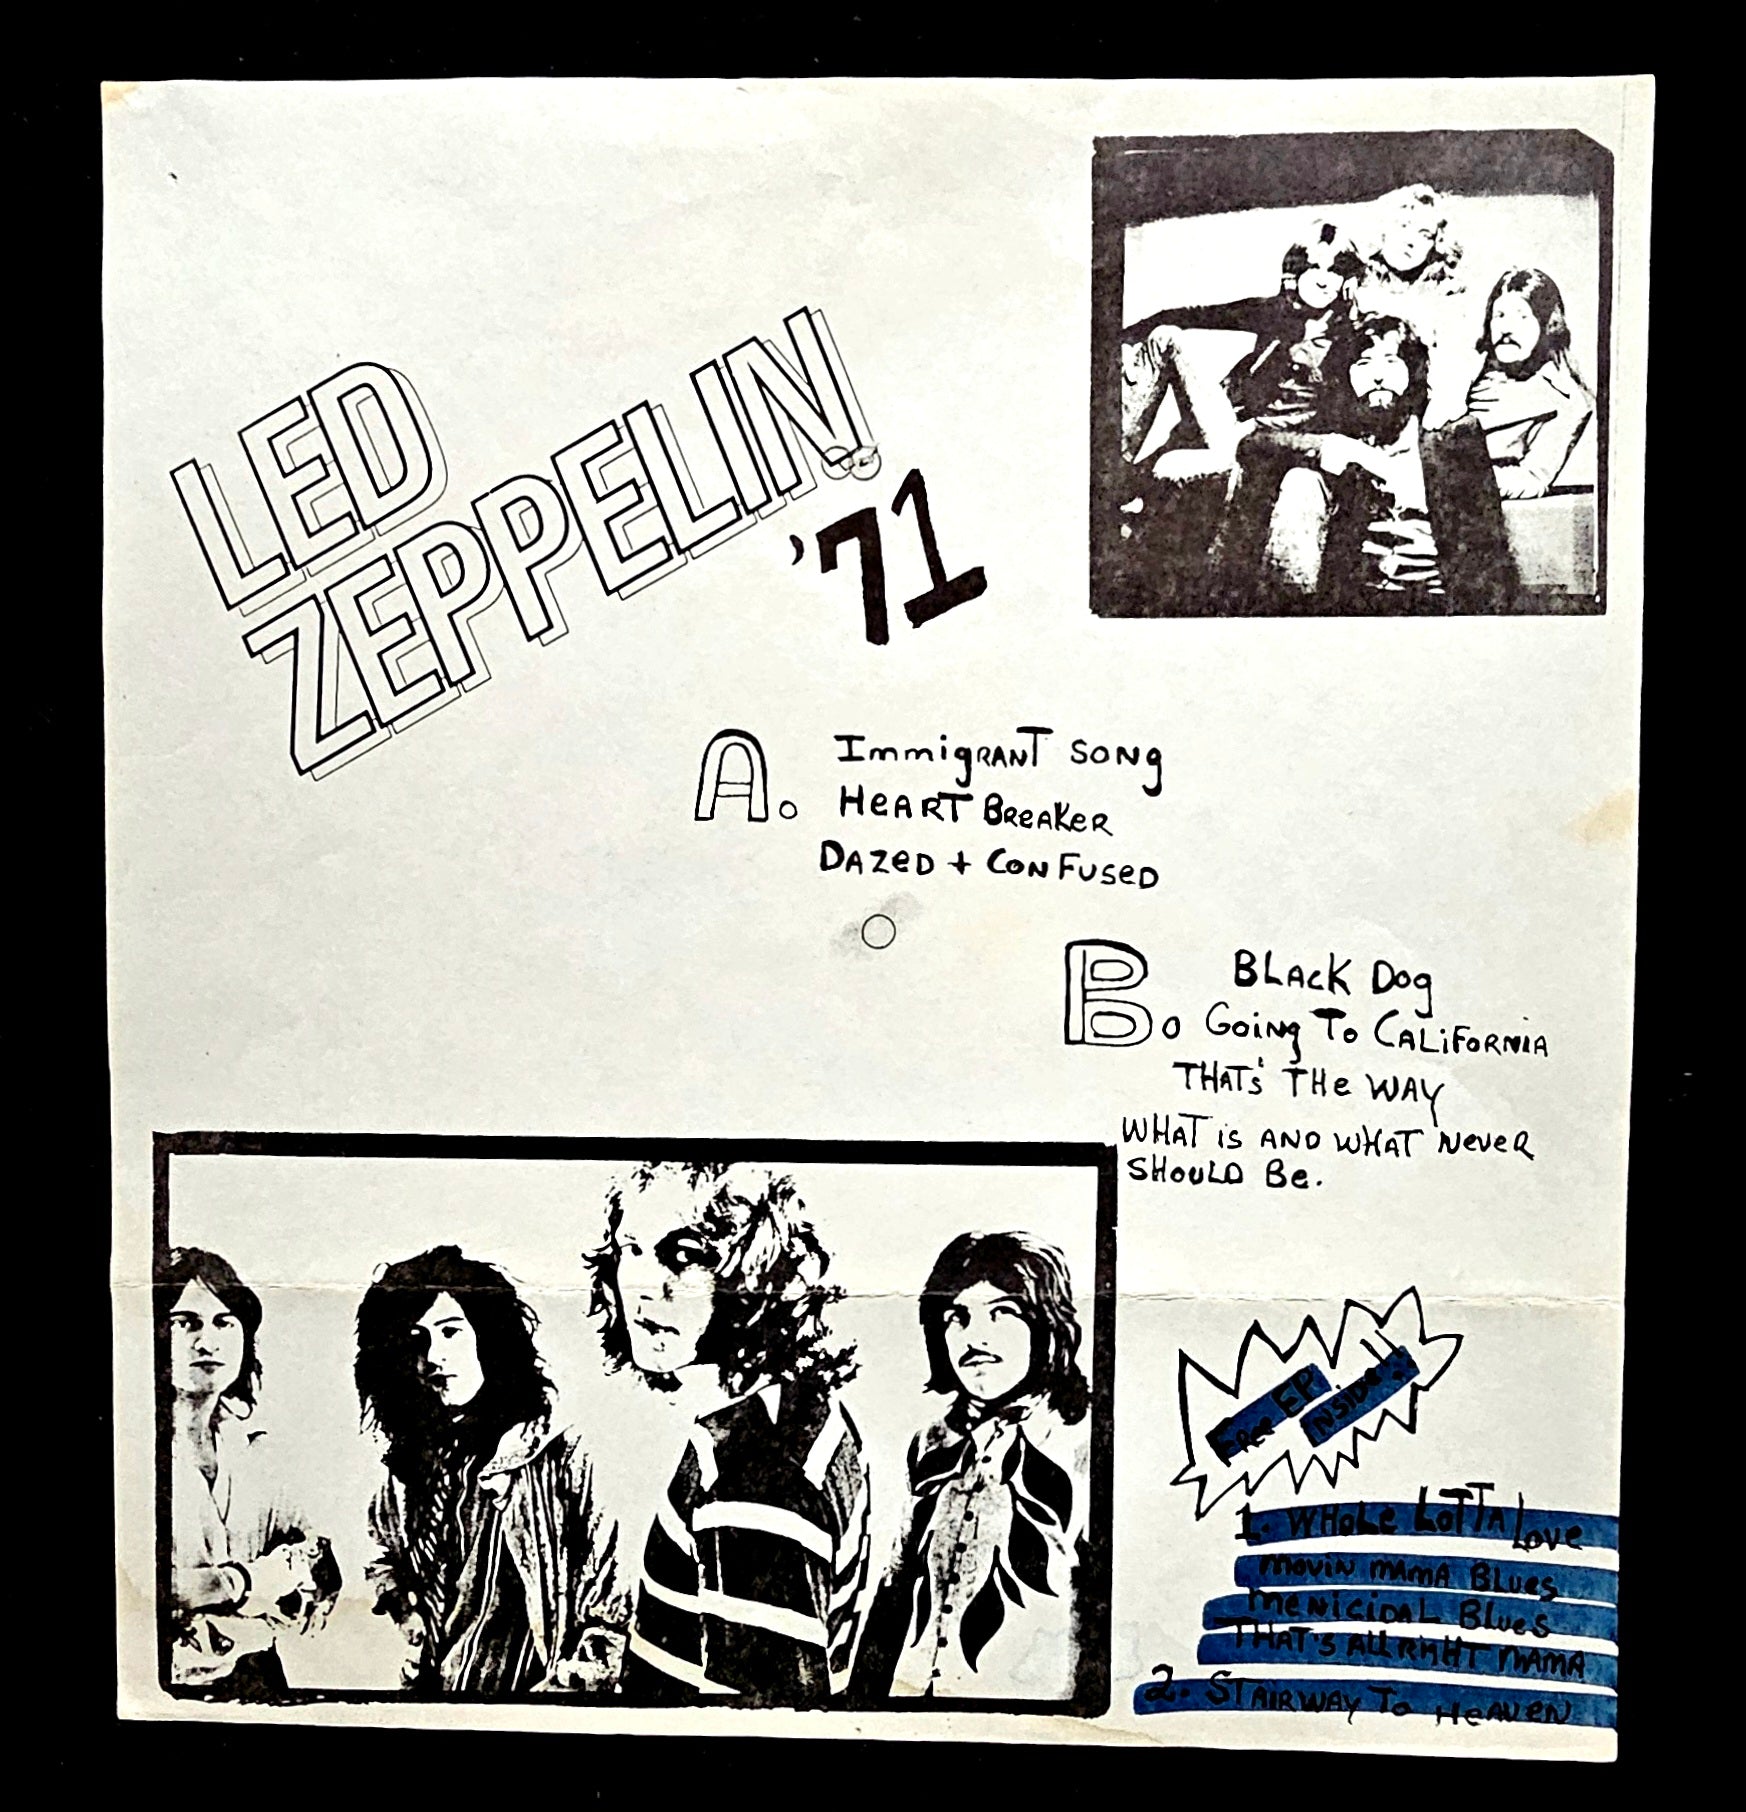 LED
ZEPPELIN.
'71
A. Immigrant Song
Heart Breaker
Dazed + Confused
B. Black Dog
Going To California
That's The Way
What is and what never
should be.
Free EP
inside
1. Whole Lotta Love
Movin mama Blues
Menicidal Blues
That's all right mama
2. Stairway To Heaven